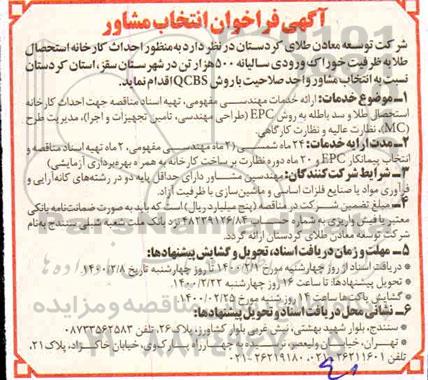 آگهی فراخوان انتخاب مشاور
شرکت توسعه معادن طلای کردستان در نظر دارد به منظور احداث کارخانه استحصال
طلا به ظرفیت خوراک ورودی سالیانه ۵۰۰ هزار تن در شهرستان سقز، استان کردستان
نسبت به انتخاب مشاور واجد صلاحیت با روش QCBS اقدام نماید.
۱ـ موضوع خدمات: ارائه خدمات مهندسی مفهومی، تهیه اسناد مناقصه جهت احداث کارخانه
استحصال طلا و سد باطله به روش EPC (طراحی مهندسی، تامین تجهیزات و اجرا)، مدیریت طرح
(MC)، نظارت عالیه و نظارت کارگاهی.
۲ـ مدت ارایه خدمات: ۲۴ ماه شمسی (۲ ماه مهندسی مفهومی، ۲ ماه تهیه اسناد مناقصه و
انتخاب پیمانکار EPC و ۲۰ ماه دوره نظارت بر ساخت کارخانه به همره بهره‌برداری آزمایشی)
۳ـ شرایط شرکت کنندگان: مهندسین مشاور دارای حداقل پایه دو در رشته‌های کانه‌آرایی و
فرآوری مواد یا صنایع فلزات اساسی و ماشین‌سازی با ظرفیت آزاد.
۴ـ مبلغ تضمین شرکت در مناقصه (پنج میلیارد ریال) است که باید به صورت ضمانتنامه بانکی
معتبر یا فیش واریزی به شماره نزد بانک ملت شعبه شبلی سنندج به نام
شرکت توسعه معادن طلای کردستان ارائه گردد.
۵ـ مهلت و زمان دریافت اسناد، تحویل و گشایش پیشنهادها:
* دریافت اسناد از روز چهارشنبه مورخ ۱۴۰۰/۲/۱ تا روز چهارشنبه تاریخ ۱۴۰۰/۲/۸.
* تحویل پیشنهادها: تا ساعت ۱۶ روز چهارشنبه ۱۴۰۰/۲/۲۲
* گشایش پاکت‌ها ساعت روز شنبه مورخ ۱۴۰۰/۰۲/۲۵
۶ـ نشانی محل دریافت اسناد و تحویل پیشنهادها:
* سنندج، بلوار شهید بهشتی، نبش غربی بلوار کشاورز، پلاک ۲۶، تلفن ۰۸۷۳۳۵۶۲۵۸۳
* تهران، خیابان ولیعصر، نرسیده به چهارراه پارک‌وی، خیابان خاکزاد، پلاک ۲۱،
تلفن ۲۶۲۱۱۶۰۱ـ۰۲۱، ۲۶۲۱۹۱۸۰ـ۰۲۱